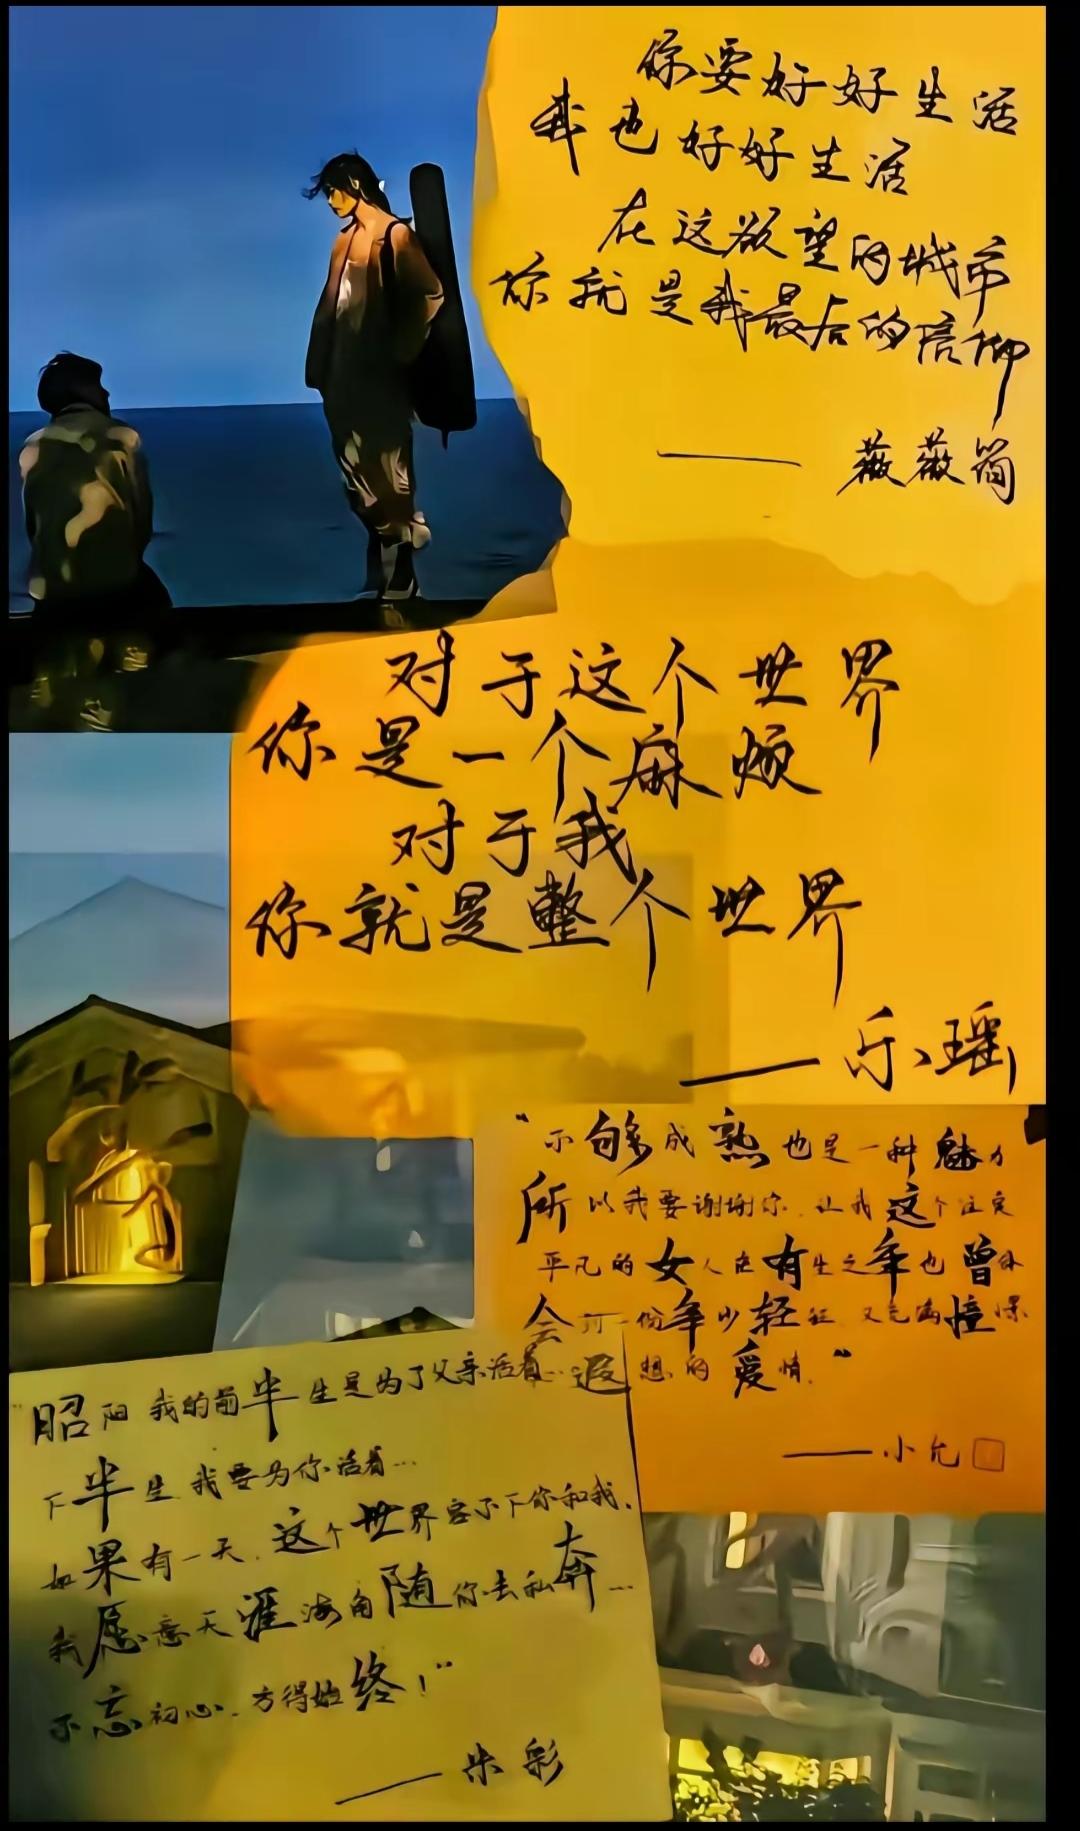 你要好好生活
我也好好生活
在这欲望的城市
你就是我最后的信仰
——薇薇简
对于这个世界
你是一个麻烦
对于我
你就是整个世界
——乐瑶
“不够成熟也是一种魅力
所以我要谢谢你.让我这个注定
平凡的女人在有生之年也曾体
会过一份年少轻狂.又充满憧憬
遐想的爱情.”
——小允
“昭阳 我的前半生是为了父亲活着...
下半生.我要为你活着...
如果有一天.这个世界容不下你和我.
我愿意天涯海角随你去私奔...
不忘初心.方得始终!”
——米彩